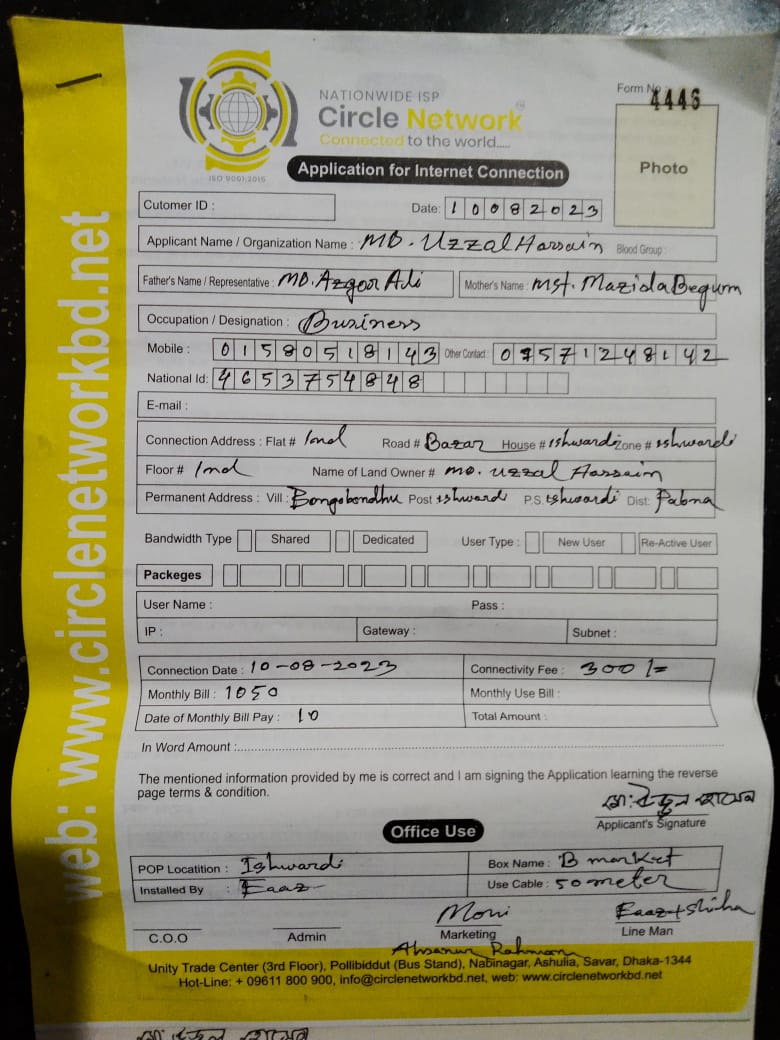 web: www.circlenetworkbd.net
NATIONWIDE ISP
Circle Network
Connected to the world.....
ISO 9001:2015
Form No 4446
Photo
Application for Internet Connection
Cutomer ID :
Date: 10082023
Applicant Name / Organization Name : MD. Uzzal Hossain Blood Group:
Father's Name / Representative : MD. Azgor Ali Mother's Name : Mst. Mazida Begum
Occupation / Designation : Business
Mobile : 01580518143 Other Contact :
National Id: 4653754848
E-mail :
Connection Address : Flat # Road # Bazar House # ishwardi Zone # ishwardi
Floor # Name of Land Owner # MD. Uzzal Hossain
Permanent Address : Vill : Bongobondhu Post ishwardi P.S. ishwardi Dist: Pabna
Bandwidth Type Shared Dedicated User Type : New User Re-Active User
Packeges
User Name : Pass :
IP : Gateway : Subnet :
Connection Date : 10-08-2023 Connectivity Fee : 300/=
Monthly Bill : 1050 Monthly Use Bill :
Date of Monthly Bill Pay : 10 Total Amount :
In Word Amount :
The mentioned information provided by me is correct and I am signing the Application learning the reverse
page terms & condition.
Applicant's Signature
Office Use
POP Locatition : Ishwardi Box Name : B market
Installed By : Eaaz Use Cable : 50 meter
Moni Eaaz + Shiha
C.O.O Admin Marketing Line Man
Ahsanur Rahman
Unity Trade Center (3rd Floor), Pollibiddut (Bus Stand), Nabinagar, Ashulia, Savar, Dhaka-1344
Hot-Line: + 09611 800 900, info@circlenetworkbd.net, web: www.circlenetworkbd.net